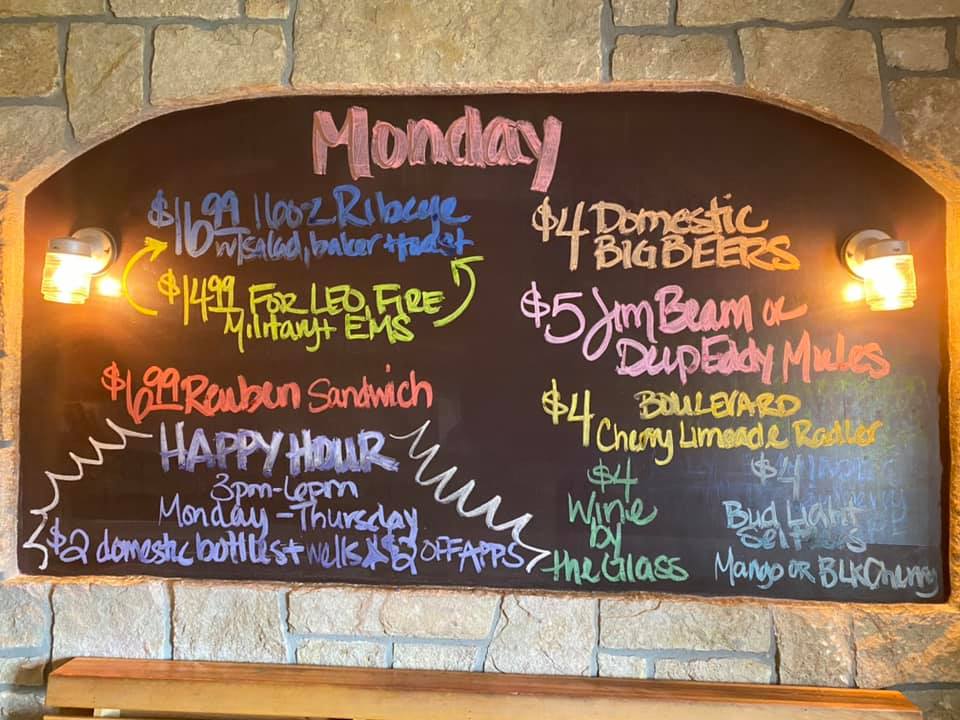 Monday
$16.99 16oz Ribeye
w/salad, baker + tudst
$14.99 FOR LEO, FIRE
Military + EMS
$6.99 Reuben Sandwich
HAPPY HOUR
3pm-6pm
Monday - Thursday
$2 domestic bottles + wells $2 OFF APPS
$4 Domestic
BIG BEERS
$5 Jim Beam or
Deep Eddy Mules
$4 BOULEVARD
Cherry Limeade Radler
$4
Wine
by
the Glass
$4
Bud Light
Seltzers
Mango OR BLK Cherry